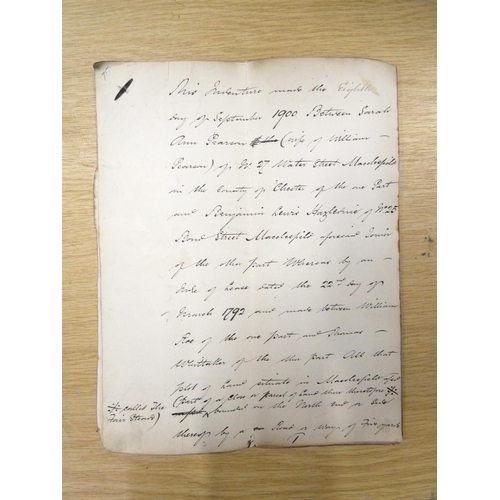 This Indenture made the Eighth
day of September 1900 Between Sarah
Ann Pearson (wife of William
Pearson) of No. 27 Water Street Macclesfield
in the County of Chester of the one Part
and Benjamin Lewis of No. 25
Bond Street Macclesfield aforesaid Joiner
of the other part Whereas by an
Indre of Lease dated the 22nd day of
March 1792 and made between William
Roe of the one part and Thomas
Whittaker of the other part All that
plot of Land situate in Macclesfield afsd
(part of a close or parcel of Land then theretofore
called The
bounded on the North end or side
Fair Steads)
thereof by a Road or way of Five yards